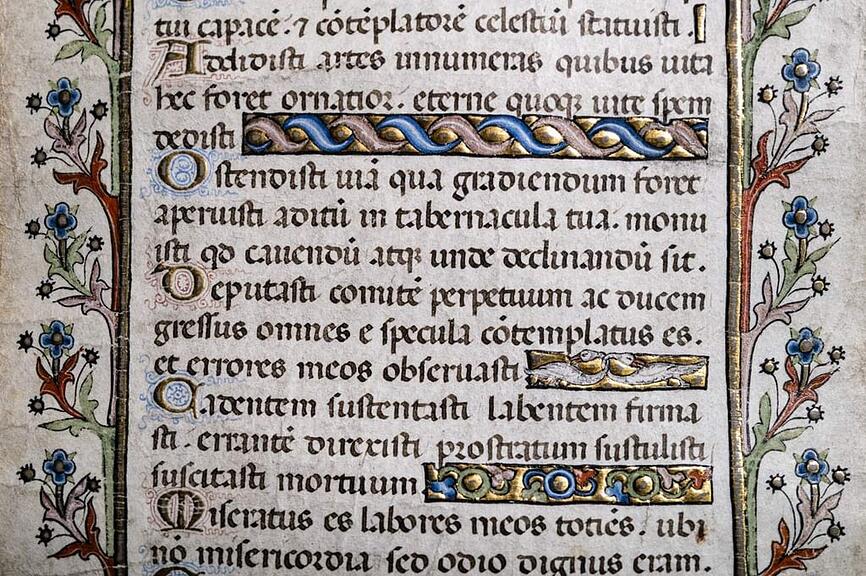 tui capacē. ⁊ cōtēplatorē celestiū statuisti.
Addidisti artes innumeras quibus uita
hec foret ornatior. eterne quoqꝫ uite spem
dedisti
Ostendisti uiā qua gradiendum foret
aperuisti aditū in tabernacula tua. monu
isti qd cauendū atqꝫ unde declinandū sit.
Deputasti comitē perpetuum ac ducem
gressus omnes e specula cōtemplatus es.
et errores meos obseruasti
Cadentem sustentasti labentem firma
sti. errantē direxisti prostratum sustulisti
suscitasti mortuum
Miseratus es labores meos totiēs. ubi
nō misericordia sed odio dignus eram.